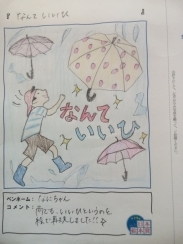 なんていいひ
なんて
いいひ
ペンネーム：なおちゃん
コメント：雨でも、いいひというのを
絵で表現しました!!